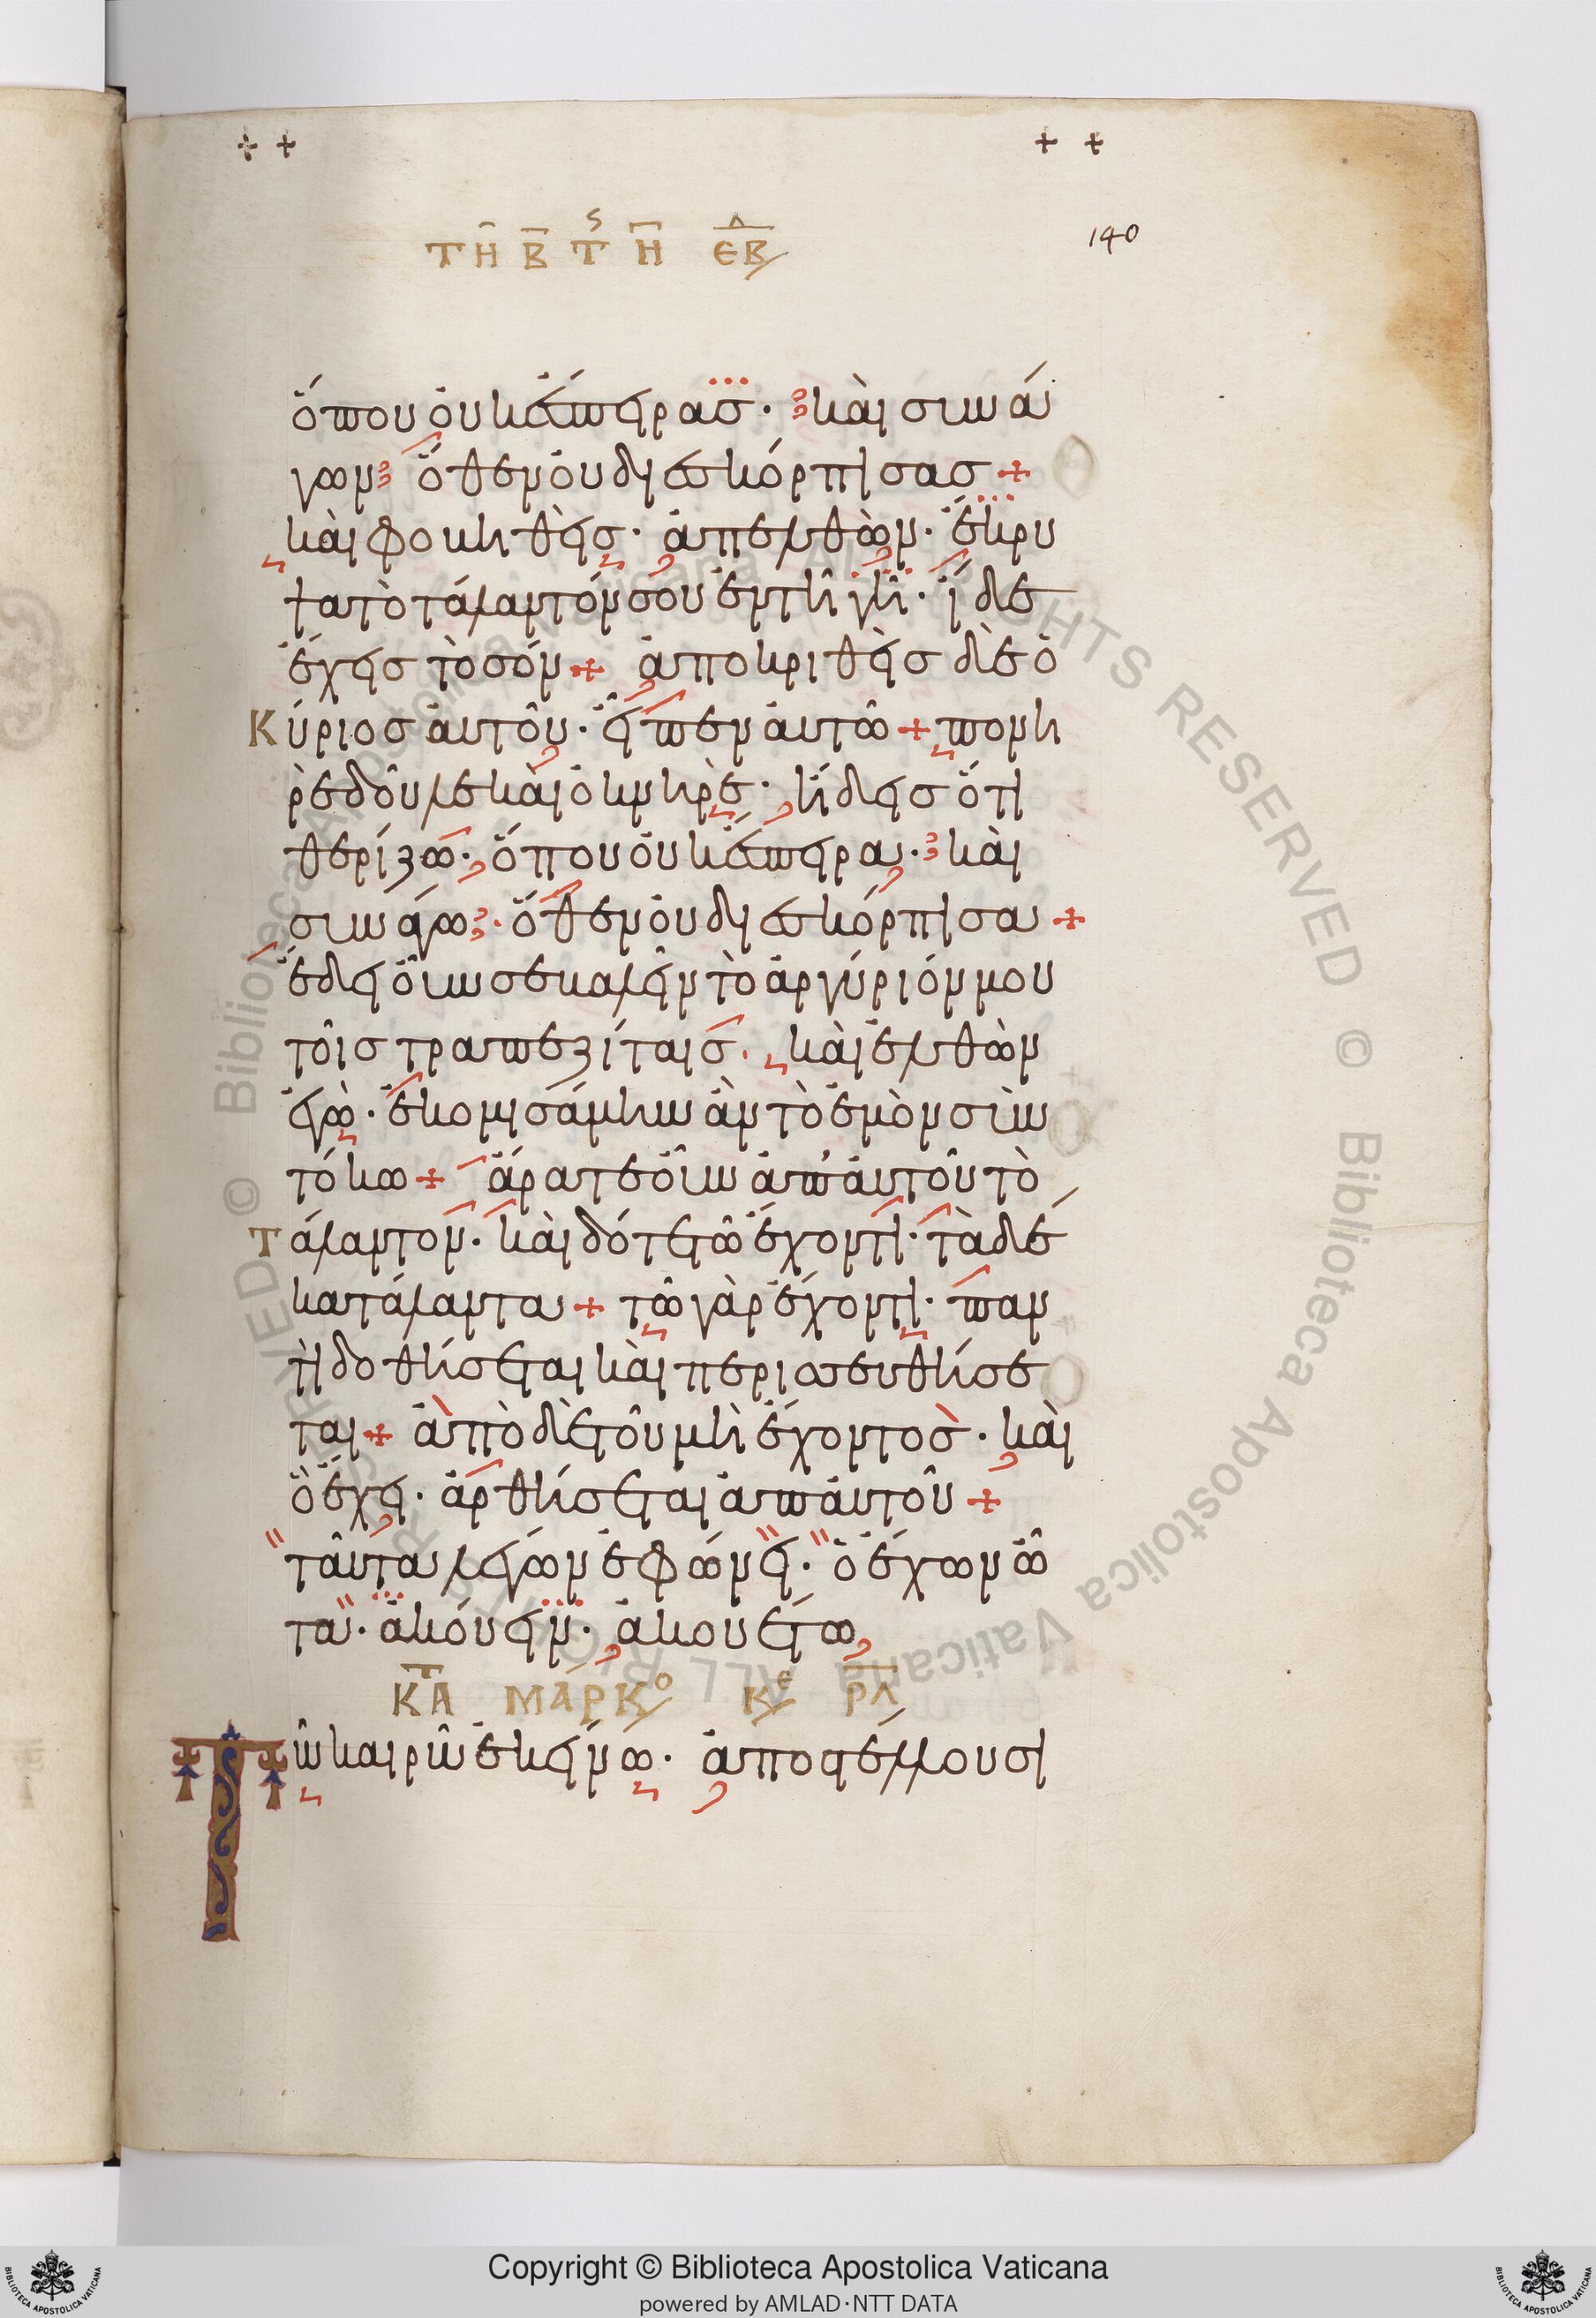 ΤΗ Β Τ Η ΕΒ
140
ὅπου οὐκ ἔσπειρασ· καὶ συνά
γων ὅθεν οὐ διεσκόρπισασ +
καὶ φοβηθεὶσ· ἀπελθὼν· ἔκρυ
ψα τὸ τάλαντόν σου ἐν τῆ γῆ· ἴδε
ἔχεισ τὸ σόν + ἀποκριθεὶσ δὲ ὁ
Κύριοσ αὐτοῦ· εἶπεν αὐτῶ + πονη
ρὲ δοῦλε καὶ ὀκνηρὲ· ἤδεισ ὅτι
θερίζω· ὅπου οὐκ ἔσπειρα· καὶ
συνάγω· ὅθεν οὐ διεσκόρπισα +
ἔδει οὖν σε βαλεῖν τὸ ἀργύριόν μου
τοῖσ τραπεζίταισ· καὶ ἐλθὼν
ἐγὼ· ἐκομισάμην ἂν τὸ ἐμὸν σὺν
τόκω + ἄρατε οὖν ἀπ' αὐτοῦ τὸ
Τάλαντον· καὶ δότε τῶ ἔχοντι· τὰ δέ
κα τάλαντα + τῶ γὰρ ἔχοντι· παν
τὶ δοθήσεται καὶ περισσευθήσε
ται + ἀπὸ δὲ τοῦ μὴ ἔχοντοσ· καὶ
ὃ ἔχει· ἀρθήσεται ἀπ αὐτοῦ +
ταῦτα λέγων ἐφώνει· ὁ ἔχων ὦ
τα· ἀκούειν· ἀκουέτω
ΚΤΑ ΜΑΡΚΟ ΚΕ ΡΛ
Τῶ καιρῶ ἐκείνω· ἀποστέλλουσι
Copyright © Biblioteca Apostolica Vaticana
powered by AMLAD·NTT DATA